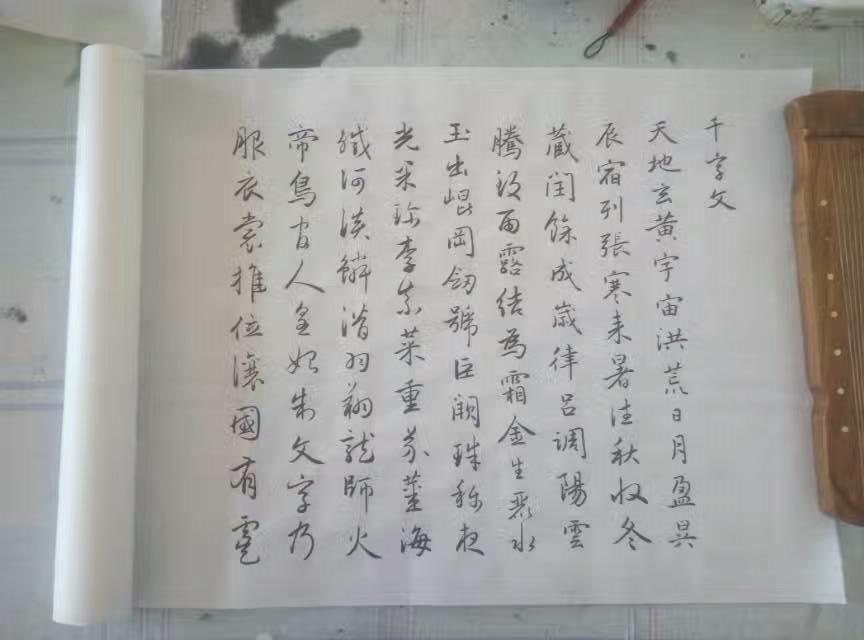 千字文
天地玄黄宇宙洪荒日月盈昃
辰宿列張寒来暑往秋收冬
藏閏餘成歲律吕調陽雲
騰致雨露結為霜金生麗水
玉出崐岡劒號巨闕珠称夜
光果珍李柰菜重芥薑海
鹹河淡鱗潜羽翔龍師火
帝鳥官人皇始制文字乃
服衣裳推位讓國有虞